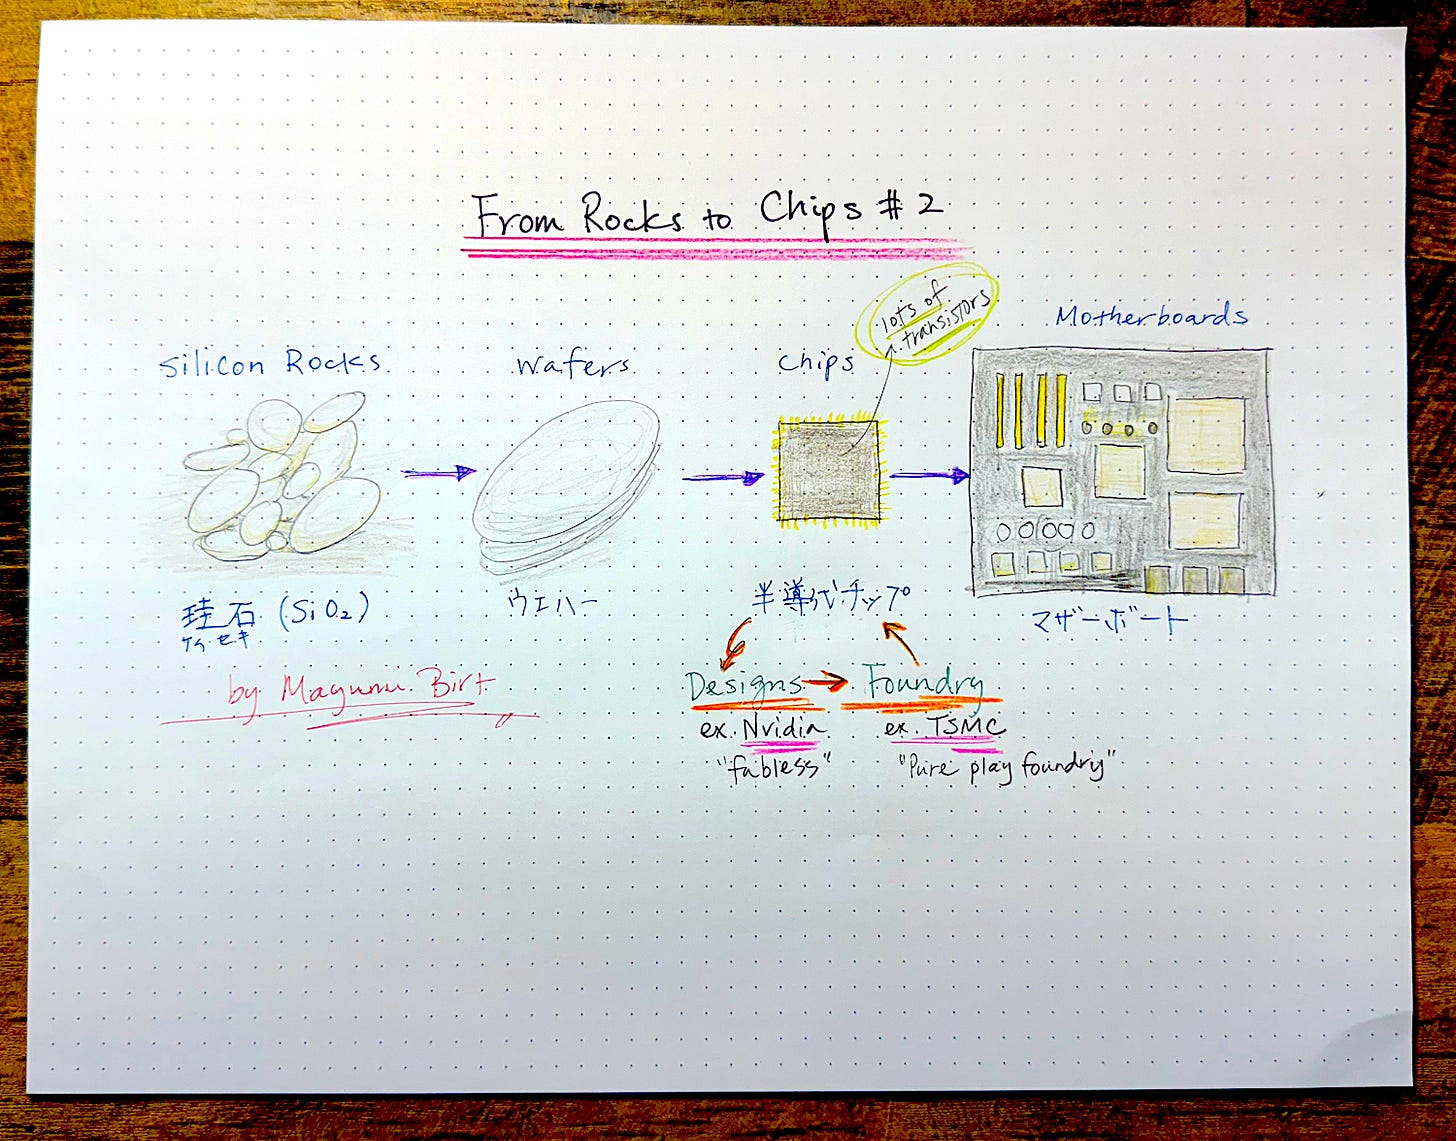 From Rocks to Chips #2
lots of
transistors
Motherboards
Silicon Rocks
Wafers
Chips
珪石 (SiO₂)
ケイセキ
ウエハー
半導体チップ
マザーボード
by Mayumi Birt
Designs
Foundry
ex. Nvidia
ex. TSMC
"fabless"
"Pure play foundry"